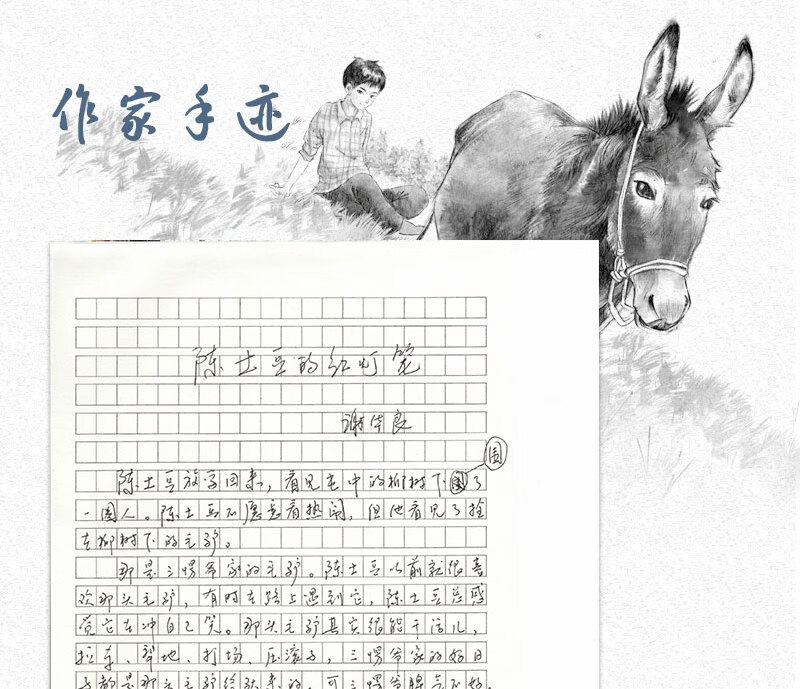 作家手迹
陈土豆的红灯笼
谢华良
围
陈土豆放学回来，看见屯中的柳树下了
一圈人。陈土豆不愿意看热闹，但他看见了拴
在柳树下的毛驴。
那是三愣爷家的毛驴。陈土豆以前就很喜
欢那头毛驴，有时在路上遇到它，陈土豆总感
觉它在冲自己笑。那头毛驴其实很能干活儿，
拉车、犁地、打场、压滚子，三愣爷家的好日
子都是那头毛驴给驮来的。可三愣爷脾气不好，